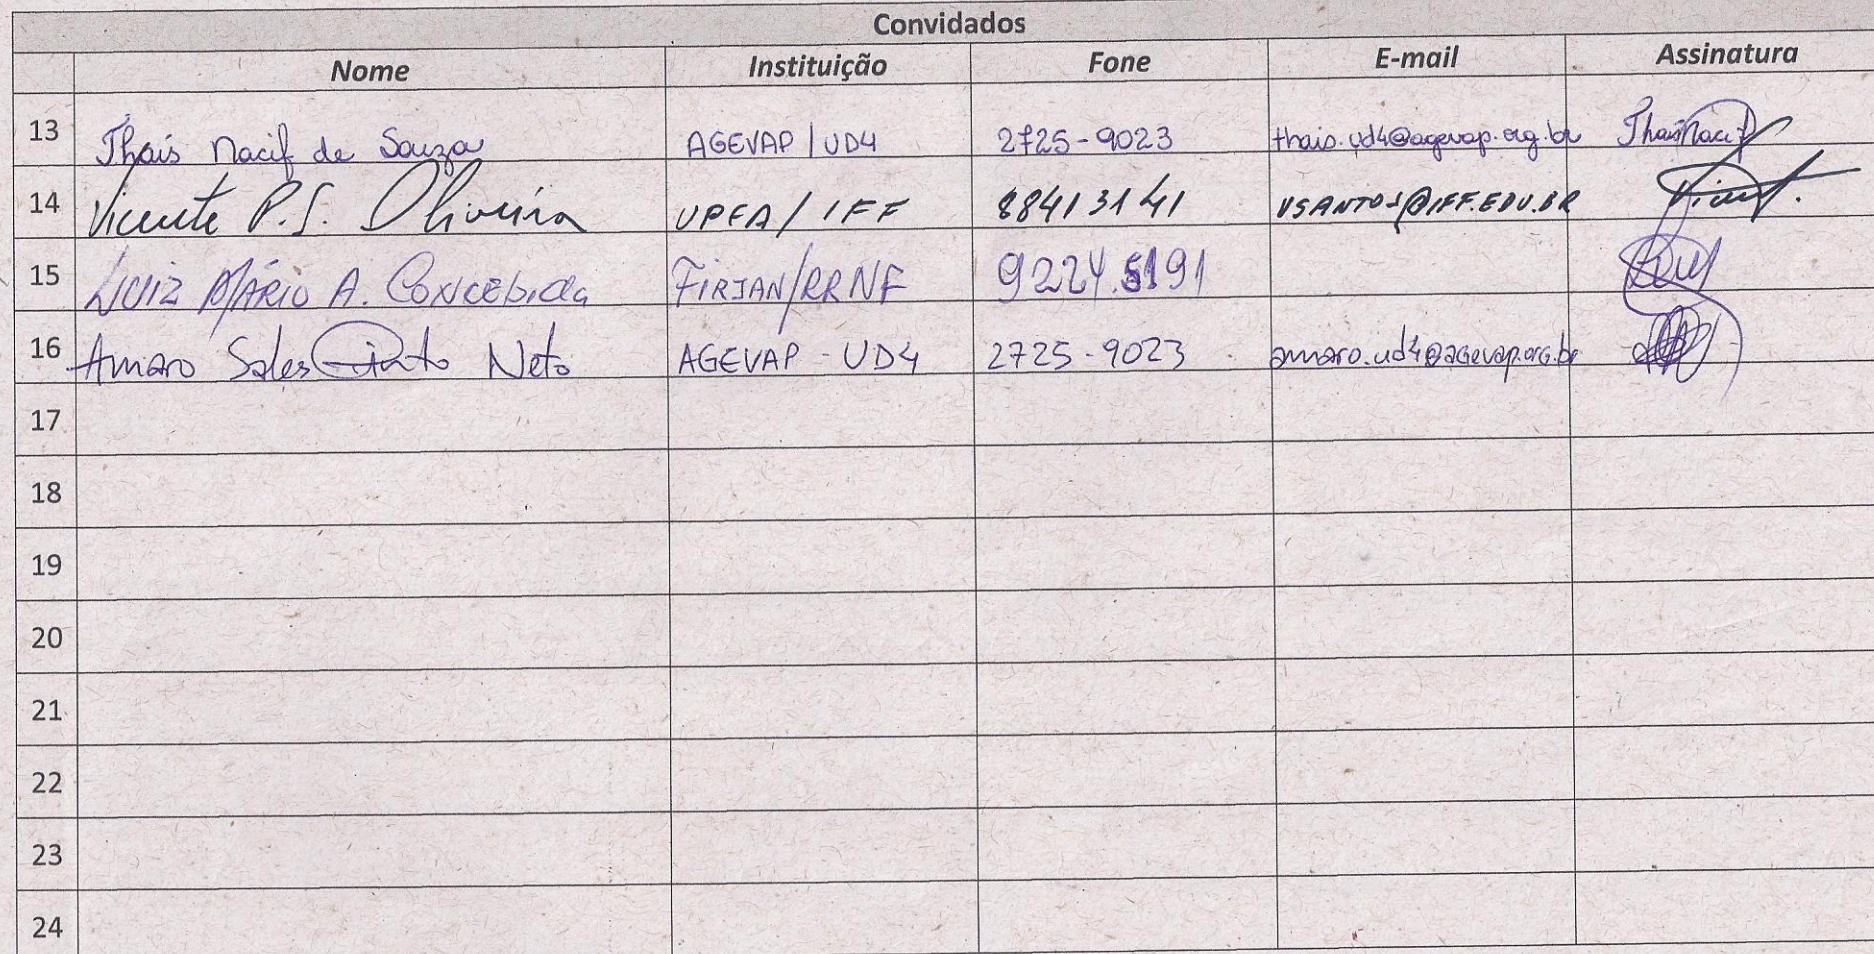 Convidados
Nome Instituição Fone E-mail Assinatura
13 Thais Nacif de Souza AGEVAP / UD4 2725-9023 thais.ud4@agevap.org.br Thais Nacif
14 Vicente P.S. Oliveira UPEA / IFF 88413141 VSANTOS@IFF.EDU.BR
15 Luiz Mário A. Concebida FIRJAN/RRNF 9224.5191
16 Amaro Sales Pinto Neto AGEVAP - UD4 2725-9023 amaro.ud4@agevap.org.br
17
18
19
20
21
22
23
24